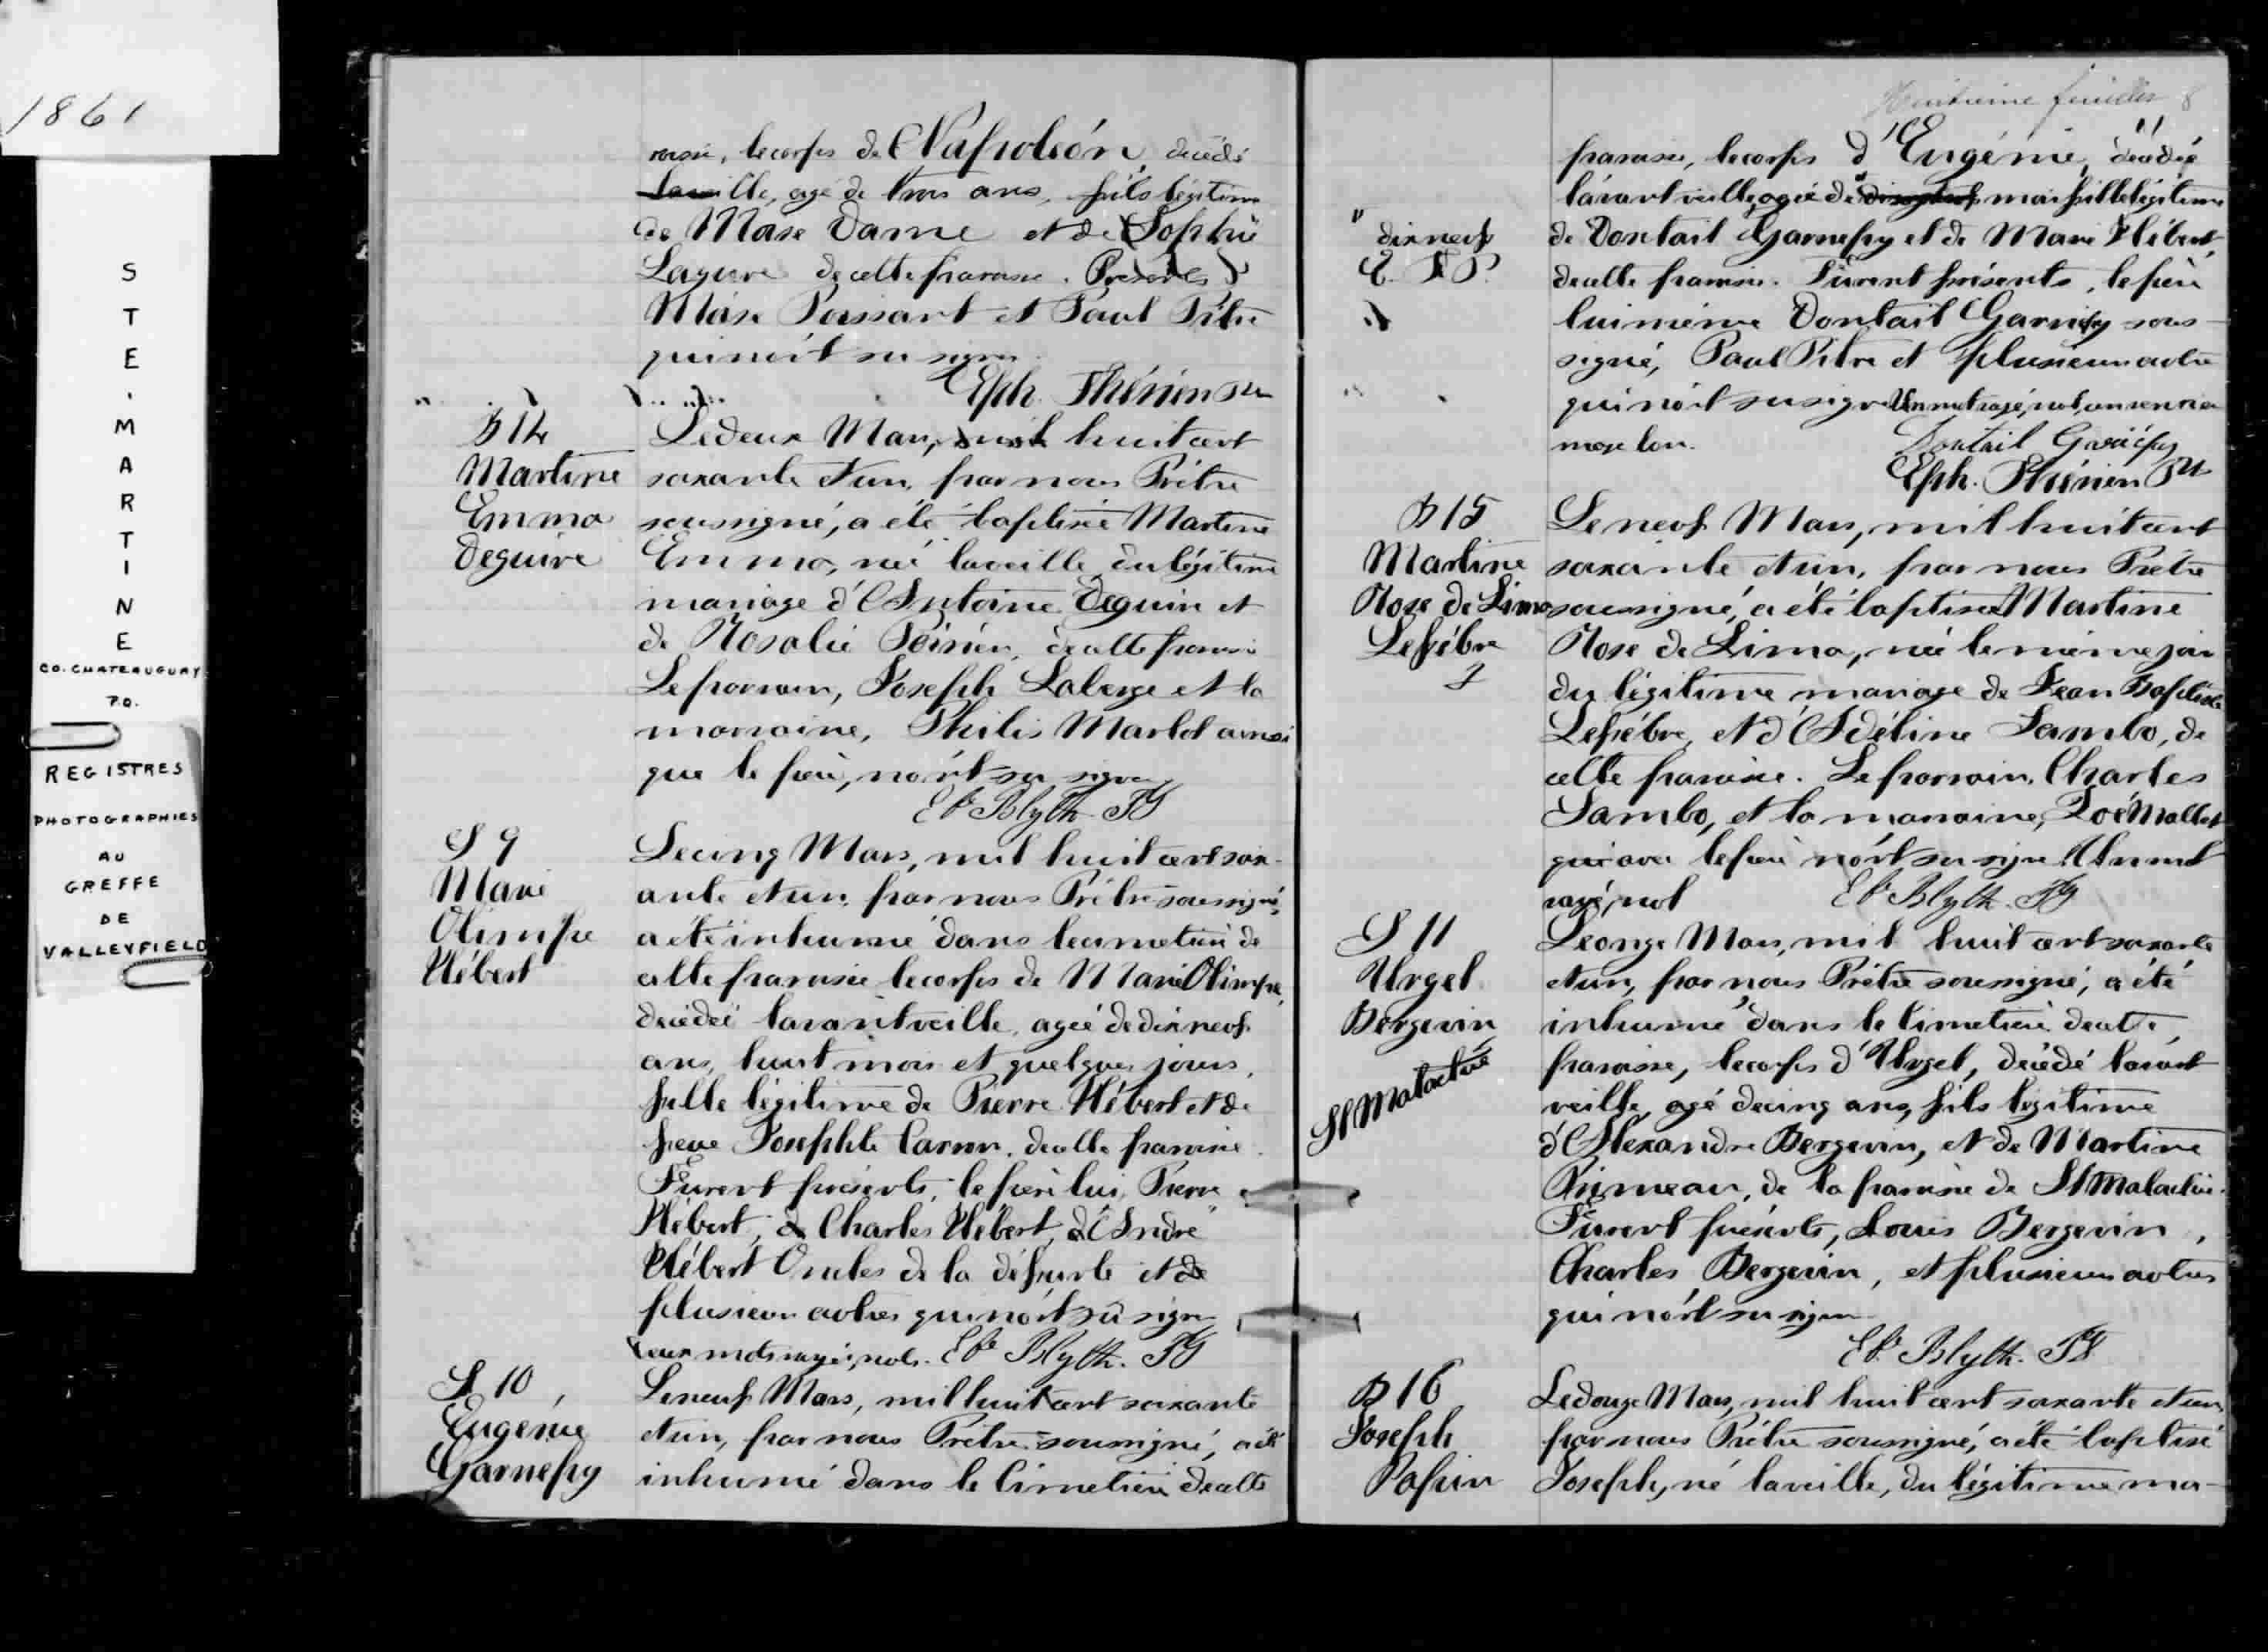 1861
STE. MARTINE
CO. CHATEAUGUAY
P.Q.
REGISTRES
PHOTOGRAPHIES
AU
GREFFE
DE
VALLEYFIELD
roisse, le corps de Napoléon, décédé
la veille, agé de trois ans, fils légitime
de Moïse Dame et de Sophie
de cette paroisse. Présents
Moïse Poissant et Paul Pitre
qui n'ont su signer
Eph. Thérien Ptre
B 14
Martine
Emma
Deguire
Le deux Mars, mil huit cent
soixante et un, par nous Prêtre
soussigné, a été baptisée Martine
Emma, née la veille du légitime
mariage d'Antoine Deguire et
de Rosalie Poirier, de cette paroisse
Le parrain, Joseph Laberge et la
marraine, Philis Martot ainsi
que le père, n'ont su signer
Et. Blyth. Ptre
S 9
Marie
Olimpe
Hébert
Le cinq Mars, mil huit cent soix-
ante et un, par nous Prêtre soussigné,
a été inhumé dans le cimetière de
cette paroisse le corps de Marie Olimpe,
décédée l'avant veille, agée de dix neuf
ans, huit mois et quelques jours,
fille légitime de Pierre Hébert et de
feue Josephte Caron, de cette paroisse.
Furent présents, le père lui, Pierre
Hébert, & Charles Hébert, & André
Hébert Oncles de la défunte et de
plusieurs autres qui n'ont su signer
Deux mots rayés, nuls. Et. Blyth. Ptre
S 10
Eugénie
Garnepy
Le neuf Mars, mil huit cent soixante
et un, par nous Prêtre soussigné, a été
inhumé dans le Cimetière de cette
Huitième feuillet 8
paroisse, le corps d'Eugénie, décédée
l'avant veille, agée de mois fille légitime
" dix neuf
E. T. P.
de Dontail Garnepy et de Marie Hébert,
de cette paroisse. Furent présents, le père
lui même Dontail Garnepy sous-
signé, Paul Pitre et plusieurs autres
qui n'ont su signer Un mot rayé, nul, un renvoi en
marge bon.
Dontail Gariépy
Eph. Thérien Ptre
B 15
Martine
Rose de Lima
Lefébre
Le neuf Mars, mil huit cent
soixante et un, par nous Prêtre
soussigné, a été baptisée Martine
Rose de Lima, née le même jour
du légitime mariage de Jean Baptiste
Lefébre, et d'Adéline Sambo, de
cette paroisse. Le parrain, Charles
Sambo, et la marraine, Zoé Mallet
qui avec le père n'ont su signer. Un mot
rayé, nul Et. Blyth. Ptre
S 11
Urgel
Bergevin
St Malachie
Le onze Mars, mil huit cent soixante
et un, par nous Prêtre soussigné, a été
inhumé dans le Cimetière de cette
paroisse, le corps d'Urgel, décédé l'avant
veille, agé de cinq ans, fils légitime
d'Alexandre Bergevin, et de Martine
Primeau, de la paroisse de St Malachie.
Furent présents, Louis Bergevin,
Charles Bergevin, et plusieurs autres
qui n'ont su signer
Et. Blyth. Ptre
B 16
Joseph
Papin
Le douze Mars, mil huit cent soixante et un,
par nous Prêtre soussigné, a été baptisé
Joseph, né la veille, du légitime ma-